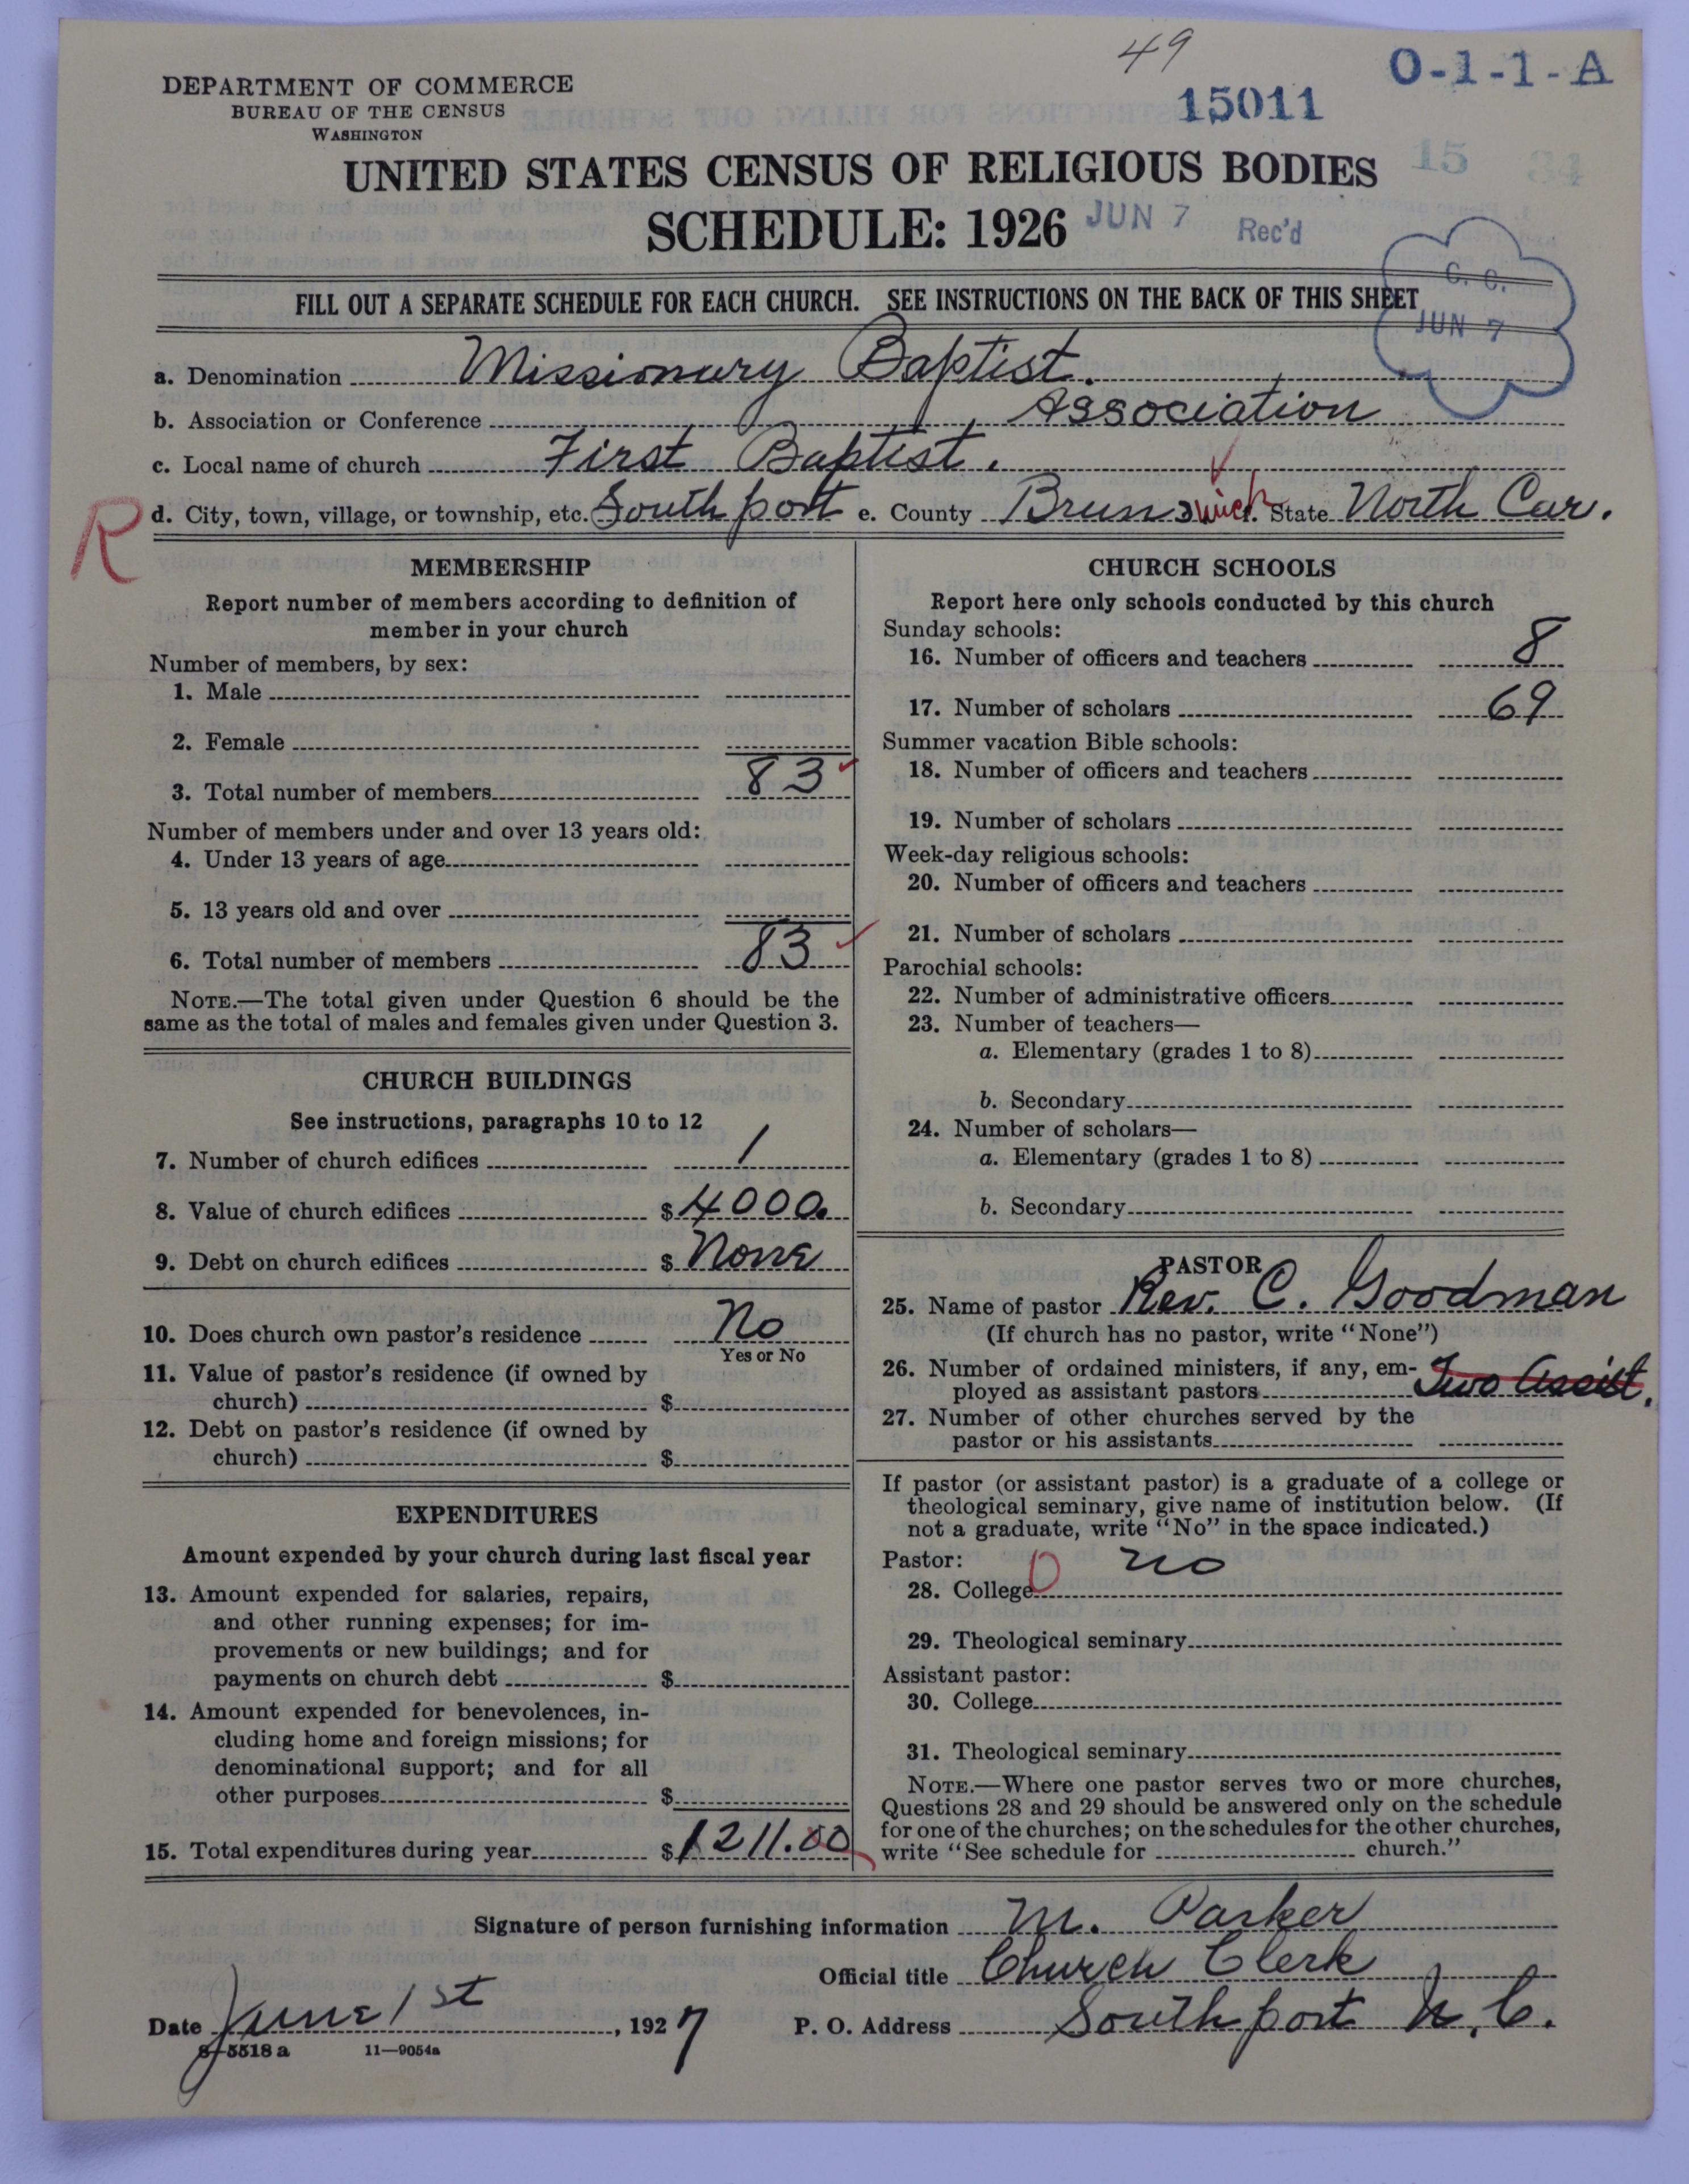 49
15011
O-1-1-A
DEPARTMENT OF COMMERCE
BUREAU OF THE CENSUS
WASHINGTON
15 34
UNITED STATES CENSUS OF RELIGIOUS BODIES
SCHEDULE: 1926
JUN 7 Rec'd
C. C.
JUN 7
FILL OUT A SEPARATE SCHEDULE FOR EACH CHURCH. SEE INSTRUCTIONS ON THE BACK OF THIS SHEET
a. Denomination Missionary Baptist.
b. Association or Conference Association
c. Local name of church First Baptist.
R
d. City, town, village, or township, etc. Southport e. County Brunswick State North Car.
MEMBERSHIP
Report number of members according to definition of
member in your church
Number of members, by sex:
1. Male
2. Female
3. Total number of members 83
Number of members under and over 13 years old:
4. Under 13 years of age
5. 13 years old and over
6. Total number of members 83
NOTE.—The total given under Question 6 should be the
same as the total of males and females given under Question 3.
CHURCH BUILDINGS
See instructions, paragraphs 10 to 12
7. Number of church edifices 1
8. Value of church edifices $ 4000.
9. Debt on church edifices $ None
10. Does church own pastor's residence No
Yes or No
11. Value of pastor's residence (if owned by
church) $
12. Debt on pastor's residence (if owned by
church) $
EXPENDITURES
Amount expended by your church during last fiscal year
13. Amount expended for salaries, repairs,
and other running expenses; for im-
provements or new buildings; and for
payments on church debt $
14. Amount expended for benevolences, in-
cluding home and foreign missions; for
denominational support; and for all
other purposes $
15. Total expenditures during year $ 1211.00
CHURCH SCHOOLS
Report here only schools conducted by this church
Sunday schools:
16. Number of officers and teachers 8
17. Number of scholars 69
Summer vacation Bible schools:
18. Number of officers and teachers
19. Number of scholars
Week-day religious schools:
20. Number of officers and teachers
21. Number of scholars
Parochial schools:
22. Number of administrative officers
23. Number of teachers—
a. Elementary (grades 1 to 8)
b. Secondary
24. Number of scholars—
a. Elementary (grades 1 to 8)
b. Secondary
PASTOR
25. Name of pastor Rev. C. Goodman
(If church has no pastor, write "None")
26. Number of ordained ministers, if any, em-
ployed as assistant pastors Two Assist.
27. Number of other churches served by the
pastor or his assistants
If pastor (or assistant pastor) is a graduate of a college or
theological seminary, give name of institution below. (If
not a graduate, write "No" in the space indicated.)
Pastor:
28. College 0 no
29. Theological seminary
Assistant pastor:
30. College
31. Theological seminary
NOTE.—Where one pastor serves two or more churches,
Questions 28 and 29 should be answered only on the schedule
for one of the churches; on the schedules for the other churches,
write "See schedule for church."
Signature of person furnishing information M. Parker
Official title Church Clerk
Date June 1st, 1927 P. O. Address Southport N.C.
8-5518 a 11—9054a